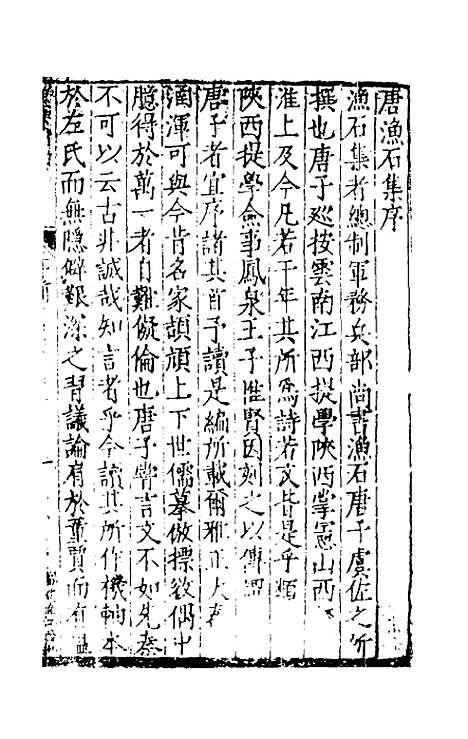 唐漁石集序
漁石集者總制軍務兵部尚書漁石唐子虞佐之所
撰也唐子廵按雲南江西提學陝西掌憲山西
淮上及今凡若干年其所爲詩若文皆是乎類
陝西提學僉事鳳泉王子惟賢因刻之以傳謂
唐子者宜序諸其首予讀是編所載爾雅正大
渾可與今昔名家頡頏上下世儒摹倣摽敓偶中
臆得於萬一者自難儗倫也唐子嘗言文不如先秦
不可以云古非誠哉知言者乎今讀其所作機軸本
於左氏而無隱僻艱深之習議論有於董賈而有